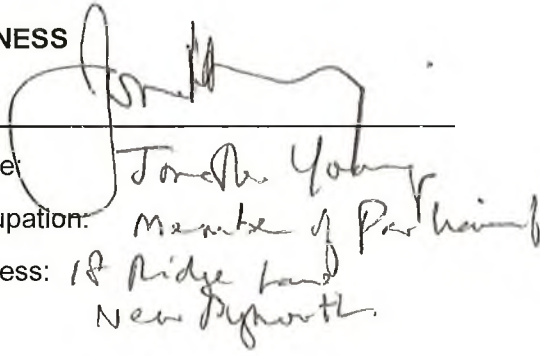 NESS
e: Jonathan Young
upation: Member of Parliament
ess: 18 Ridge Lane
New Plymouth.